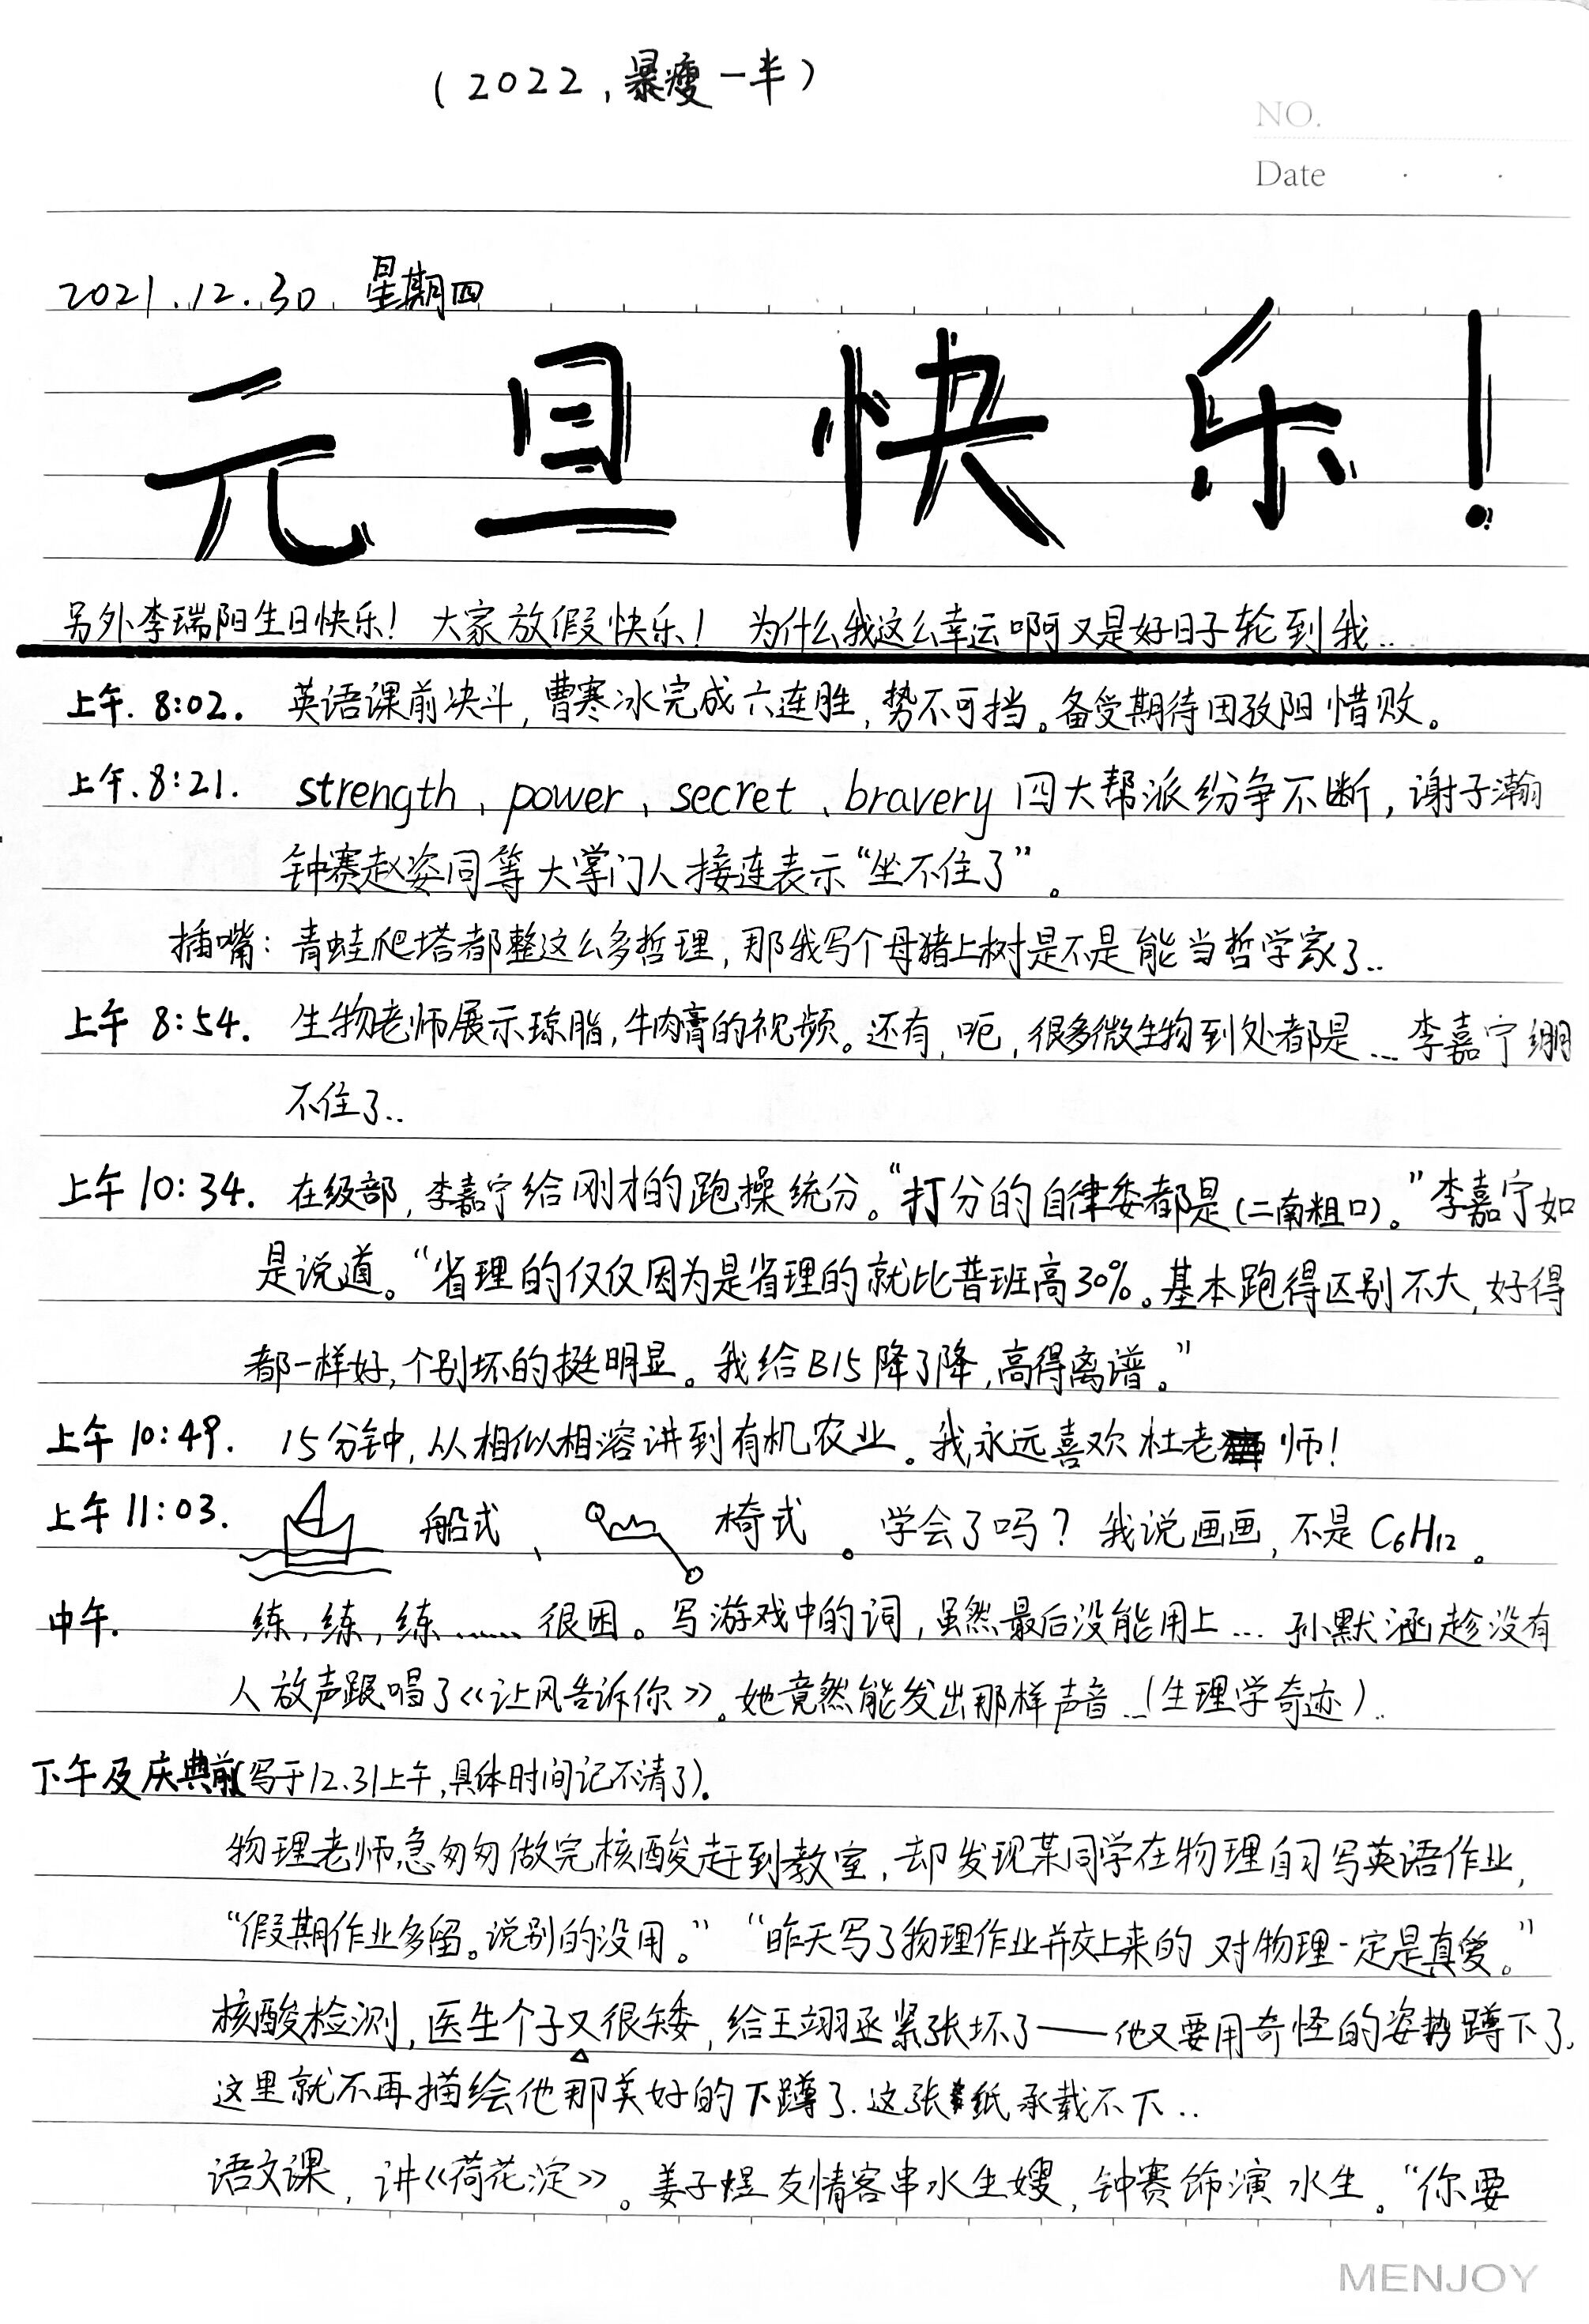 （2022，暴瘦一半）
NO.
Date
2021.12.30. 星期四
元旦快乐！
另外李瑞阳生日快乐！ 大家放假快乐！ 为什么我这么幸运啊又是好日子轮到我...
上午. 8:02. 英语课前决斗，曹寒冰完成六连胜，势不可挡。备受期待田孜阳惜败。
上午. 8:21. strength、power、secret、bravery 四大帮派纷争不断，谢子瀚
钟赛赵姿同等大掌门人接连表示“坐不住了”。
插嘴：青蛙爬塔都整这么多哲理，那我写个母猪上树是不是能当哲学家了..
上午 8:54. 生物老师展示琼脂，牛肉膏的视频。还有，呃，很多微生物到处都是... 李嘉宁绷
不住了..
上午 10:34. 在级部，李嘉宁给刚才的跑操统分。“打分的自律委都是（二南粗口）。”李嘉宁如
是说道。“省理的仅仅因为是省理的就比普班高30%。基本跑得区别不大，好得
都一样好，个别坏的挺明显。我给B15降了降，高得离谱。”
上午 10:49. 15分钟，从相似相溶讲到有机农业。我永远喜欢杜老师！
上午 11:03. 船式、 椅式。学会了吗？我说画画，不是C₆H₁₂。
中午. 练，练，练...... 很困。写游戏中的词，虽然最后没能用上... 孙默涵趁没有
人放声跟唱了《让风告诉你》。她竟然能发出那样声音...（生理学奇迹）..
下午及庆典前（写于12.31上午，具体时间记不清了）。
物理老师急匆匆做完核酸赶到教室，却发现某同学在物理自习写英语作业，
“假期作业多留。说别的没用。”“昨天写了物理作业并交上来的 对物理一定是真爱。”
核酸检测，医生个子又很矮，给王翊丞紧张坏了——他又要用奇怪的姿势蹲下了.
这里就不再描绘他那美好的下蹲了. 这张纸承载不下..
语文课，讲《荷花淀》。姜子煜友情客串水生嫂，钟赛饰演水生。“你要
MENJOY